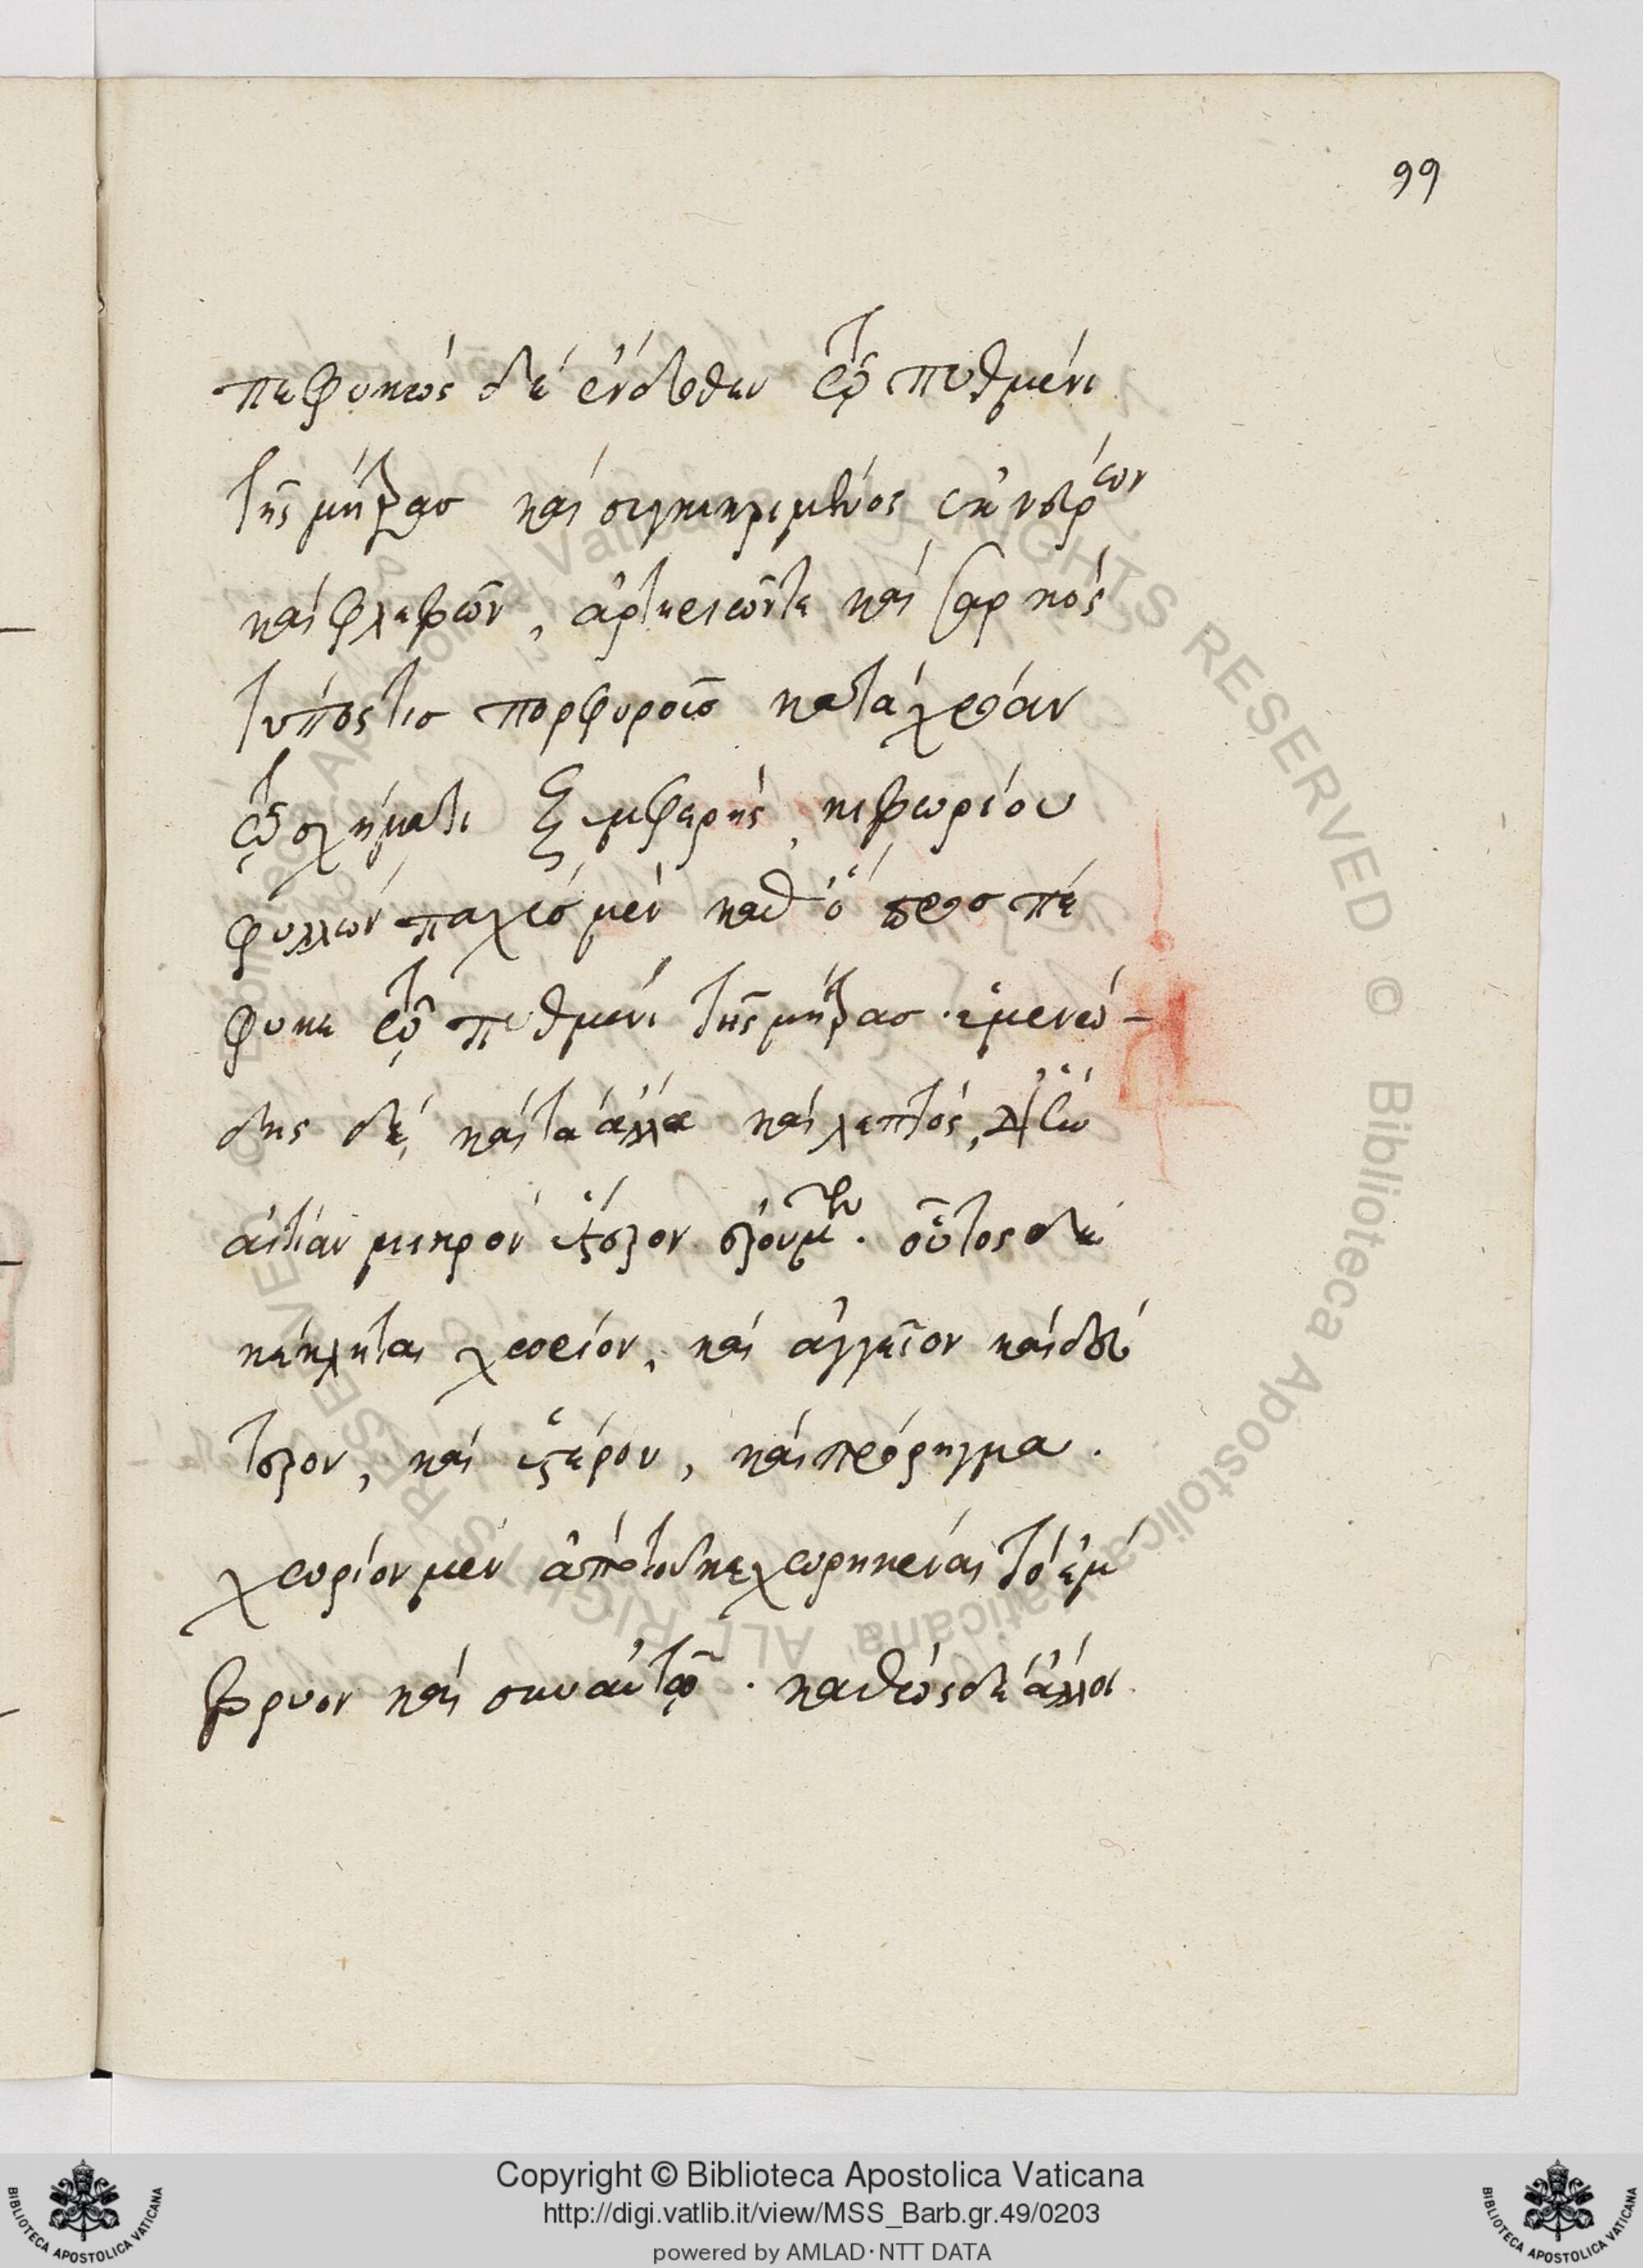 99
πεφυκὼς δὲ ἔνδοθεν τῷ πυθμένι
τῆς μήτρας καὶ συγκεκριμένος ἐκ νεύρων
καὶ φλεβῶν, ἀρτηριῶν τε καὶ σαρκὸς
πορφυροῖς κατὰ χρόαν
τῷ σχήματι ἐμφερὴς κιβωρίου
φύλλων παχὺς μὲν καθ' ὃ προσπέ
φυκε τῷ πυθμένι τῆς μήτρας. ὑμενώ-
δης δὲ κατὰ τὰ ἄλλα καὶ λεπτός,
αἰτίαν μικρὸν ὕστερον. οὗτος δὲ
κέκληται χωρίον, καὶ ἀγγεῖον καὶ δεύ
τερον, καὶ ὕστερον, καὶ πρόρηγμα.
χωρίον μὲν ἀπὸ τοῦ κεχωρηκέναι τὸ ἔμ
βρυον καὶ συναυτῷ. καθὼς δὲ ἄλλοι
Copyright © Biblioteca Apostolica Vaticana
http://digi.vatlib.it/view/MSS_Barb.gr.49/0203
powered by AMLAD·NTT DATA
BIBLIOTECA APOSTOLICA VATICANA
BIBLIOTECA APOSTOLICA VATICANA
© Biblioteca Apostolica Vaticana ALL RIGHTS RESERVED